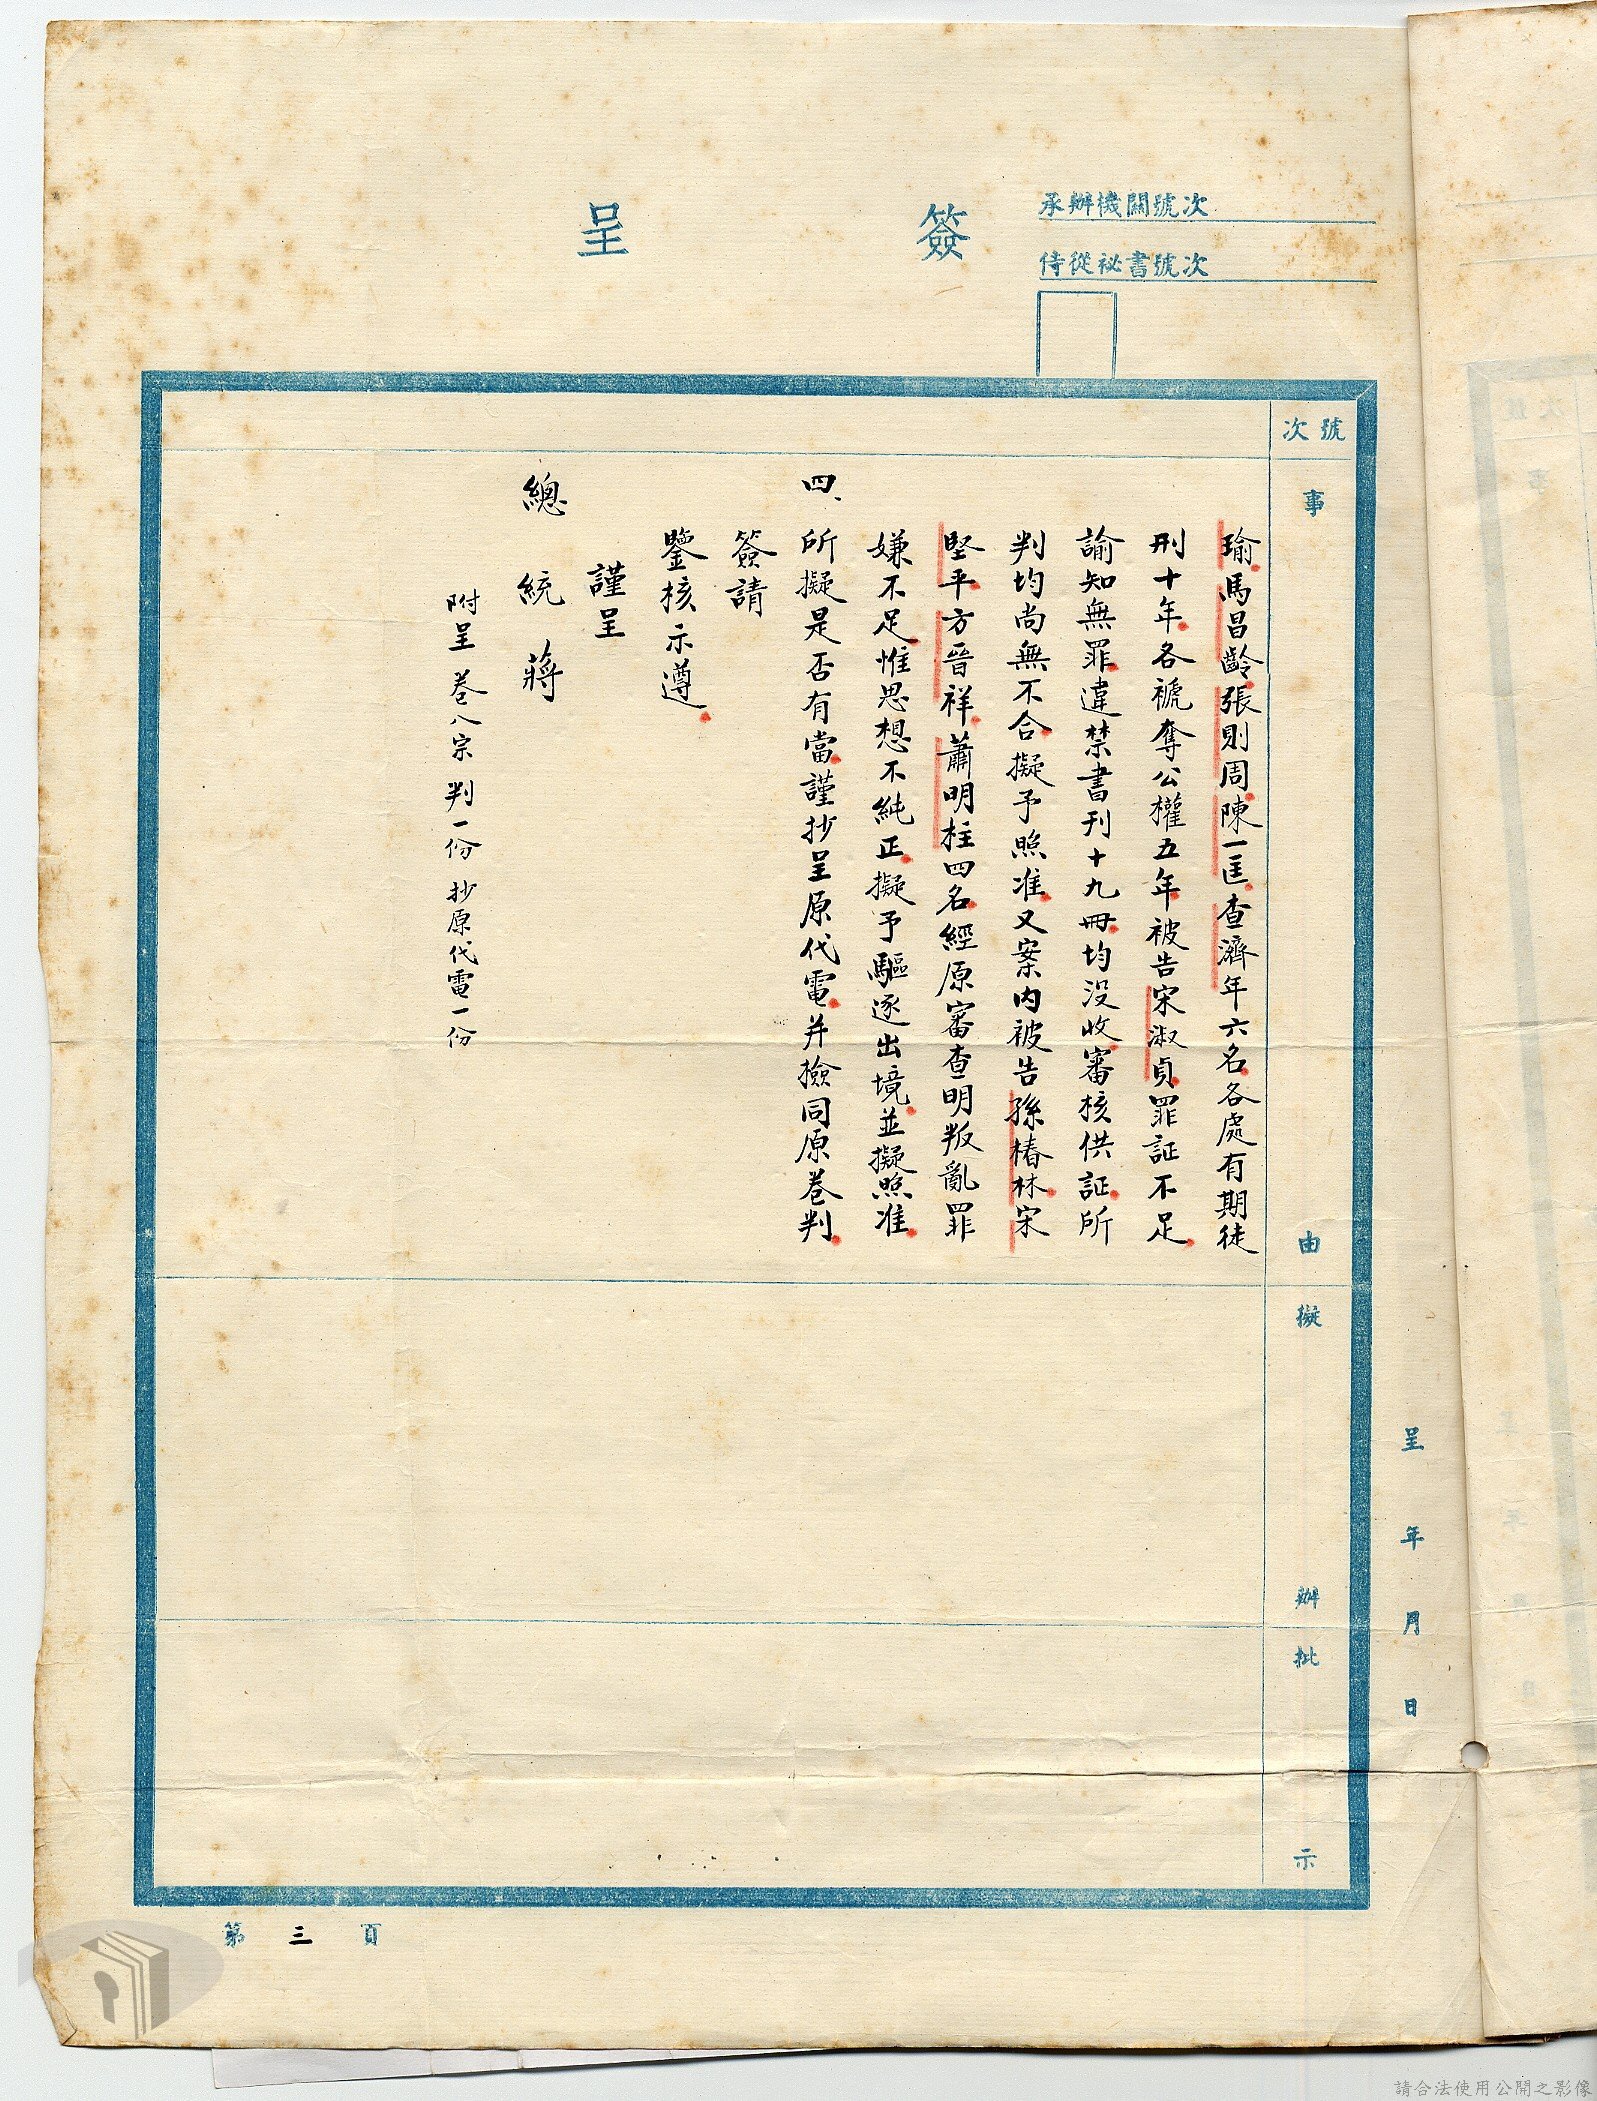 承辦機關號次
侍從祕書號次
簽呈
號次
事由
擬辦
批示
呈 年 月 日
瑜馬昌齡張則周陳一匡查濟年六名各處有期徒
刑十年各褫奪公權五年被告宋淑貞罪証不足
諭知無罪違禁書刊十九冊均没收審核供証所
判均尚無不合擬予照准又案内被告孫椿林宋
堅平方晉祥蕭明柱四名經原審查明叛亂罪
嫌不足惟思想不純正擬予驅逐出境並擬照准
四、所擬是否有當謹抄呈原代電并撿同原卷判
簽請
鑒核示遵
謹呈
總統 蔣
附呈 卷八宗 判一份 抄原代電一份
第三頁
請合法使用公開之影像